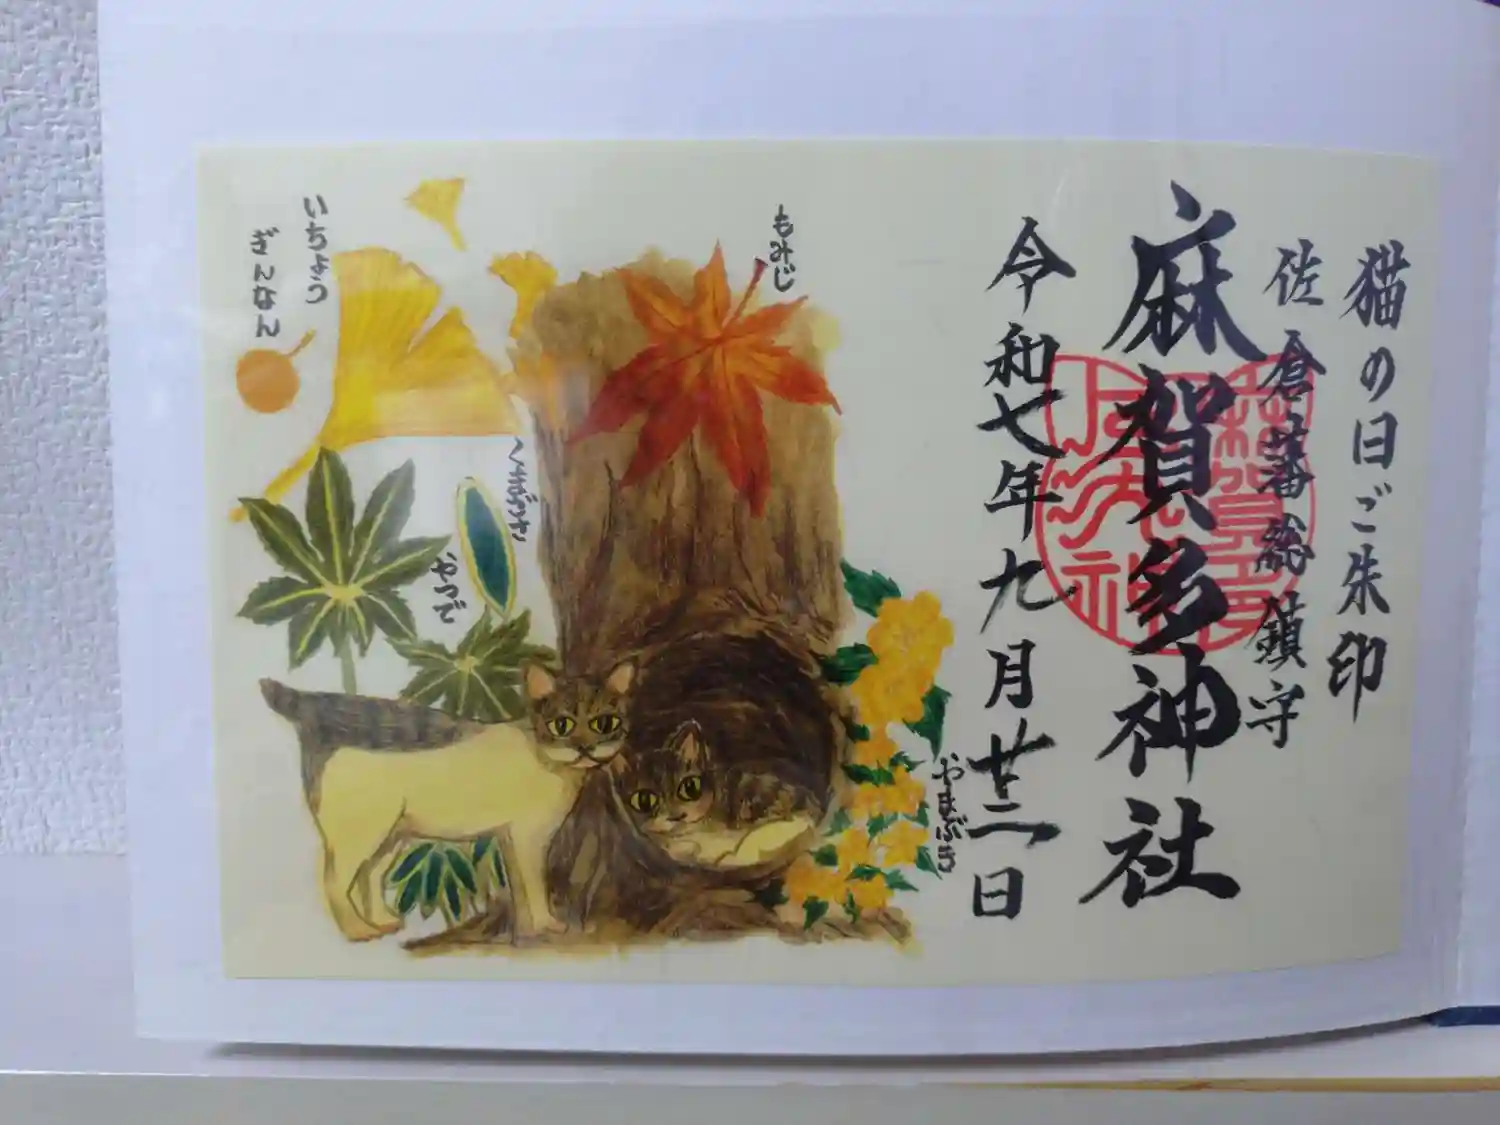 猫の日ご朱印
佐倉藩総鎮守
麻賀多神社
令和七年九月廿二日
もみじ
いちょう
ぎんなん
くまざさ
やつで
やまぶき